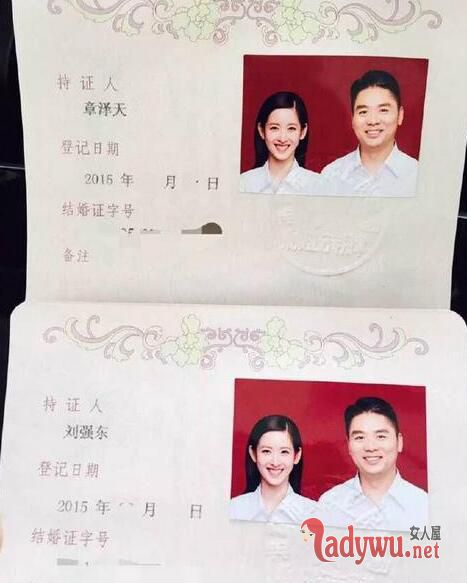 持 证 人
章泽天
登记日期
2015 年 月 日
结婚证字号
备注
持 证 人
刘强东
登记日期
2015 年 月 日
结婚证字号
女人屋
Ladywu.net